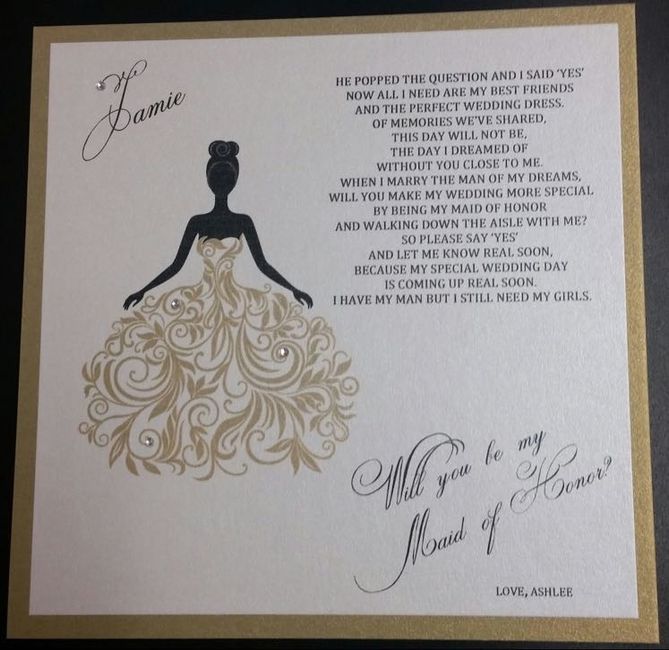 Jamie
HE POPPED THE QUESTION AND I SAID 'YES'
NOW ALL I NEED ARE MY BEST FRIENDS
AND THE PERFECT WEDDING DRESS.
OF MEMORIES WE'VE SHARED,
THIS DAY WILL NOT BE,
THE DAY I DREAMED OF
WITHOUT YOU CLOSE TO ME.
WHEN I MARRY THE MAN OF MY DREAMS,
WILL YOU MAKE MY WEDDING MORE SPECIAL
BY BEING MY MAID OF HONOR
AND WALKING DOWN THE AISLE WITH ME?
SO PLEASE SAY 'YES'
AND LET ME KNOW REAL SOON,
BECAUSE MY SPECIAL WEDDING DAY
IS COMING UP REAL SOON.
I HAVE MY MAN BUT I STILL NEED MY GIRLS.
Will you be my
Maid of Honor?
LOVE, ASHLEE